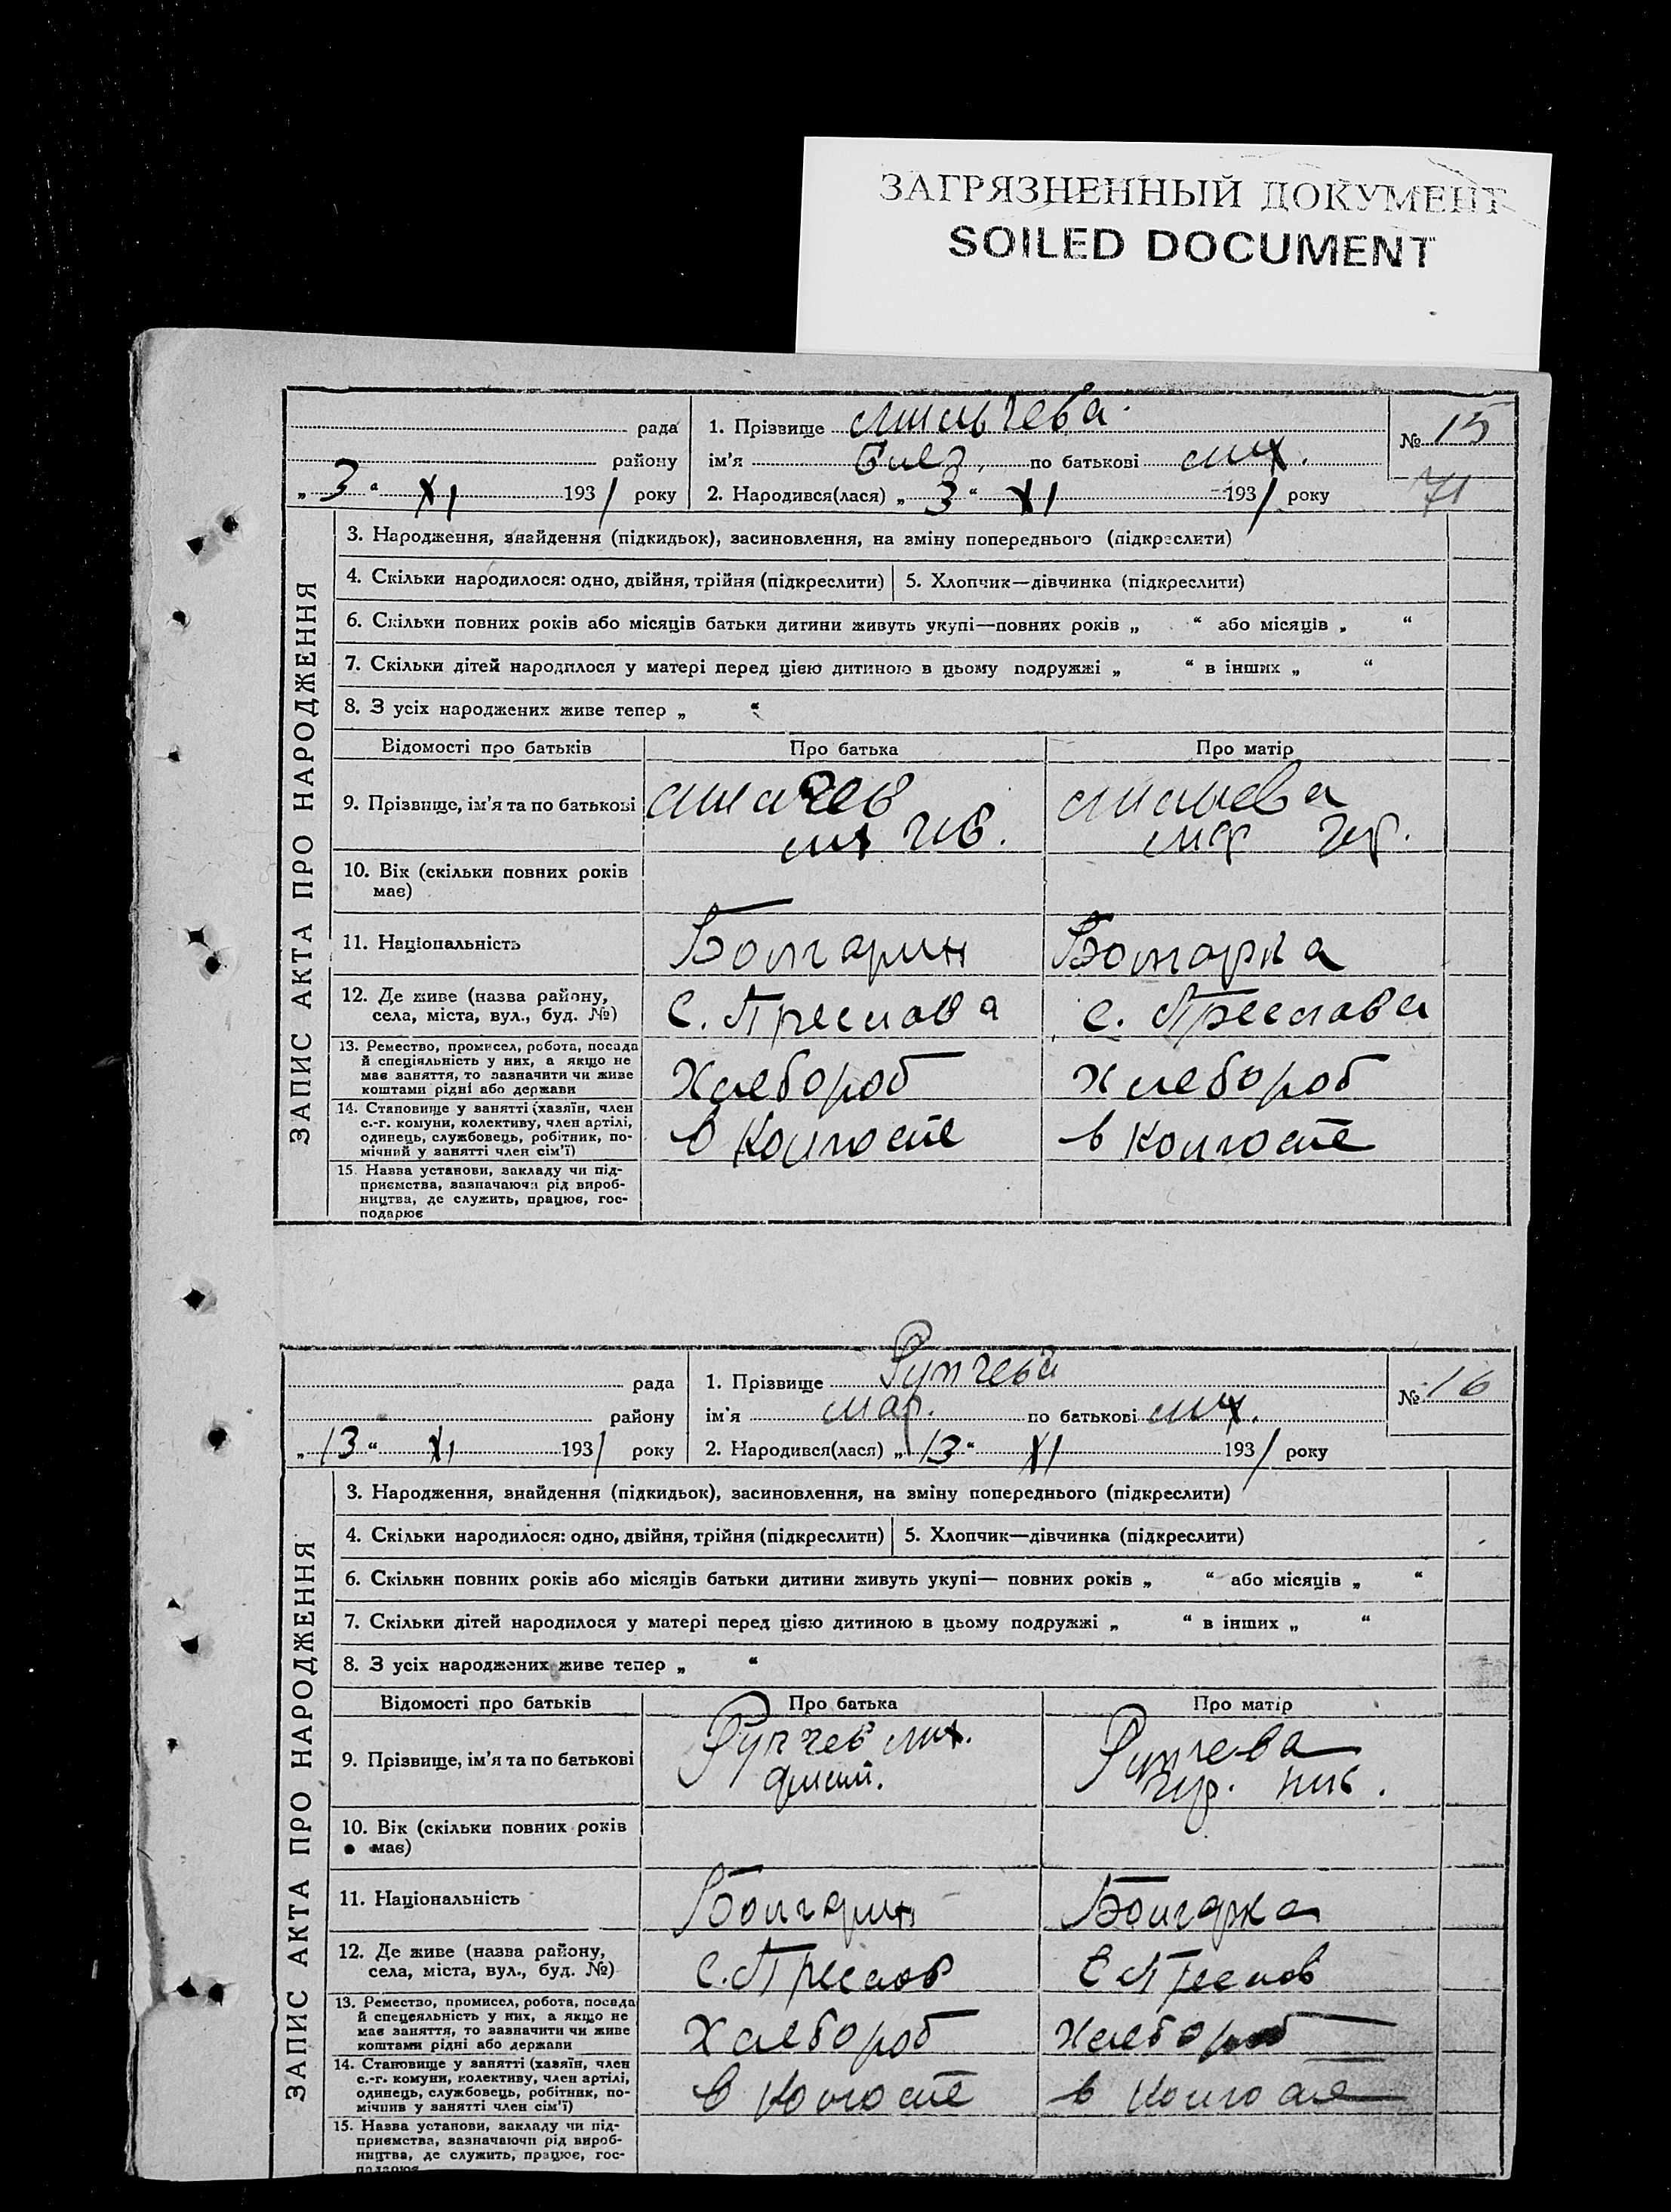 ЗАГРЯЗНЕННЫЙ ДОКУМЕНТ
SOILED DOCUMENT
рада
1. Прізвище Мильчева
№ 15
району
ім'я по батькові Мих.
„3“ XI 1931 року
2. Народився(лася) „3“ XI 1931 року
71
ЗАПИС АКТА ПРО НАРОДЖЕННЯ
3. Народження, знайдення (підкидьок), засиновлення, на зміну попереднього (підкреслити)
4. Скільки народилося: одно, двійня, трійня (підкреслити)
5. Хлопчик—дівчинка (підкреслити)
6. Скільки повних років або місяців батьки дитини живуть укупі—повних років „ “ або місяців „ “
7. Скільки дітей народилося у матері перед цією дитиною в цьому подружжі „ “ в інших „ “
8. З усіх народжених живе тепер „ “
Відомості про батьків
Про батька
Про матір
9. Прізвище, ім'я та по батькові
Мих
10. Вік (скільки повних років
має)
11. Національність
Болгарин
Болгарка
12. Де живе (назва району,
села, міста, вул., буд. №)
С. Преслава
С. Преслава
13. Ремество, промисел, робота, посада
й спеціяльність у них, а якщо не
має заняття, то зазначити чи живе
коштами рідні або держави
Хлебороб
Хлебороб
14. Становище у занятті (хазяїн, член
с.-г. комуни, колективу, член артілі,
одинець, службовець, робітник, по-
мічний у занятті член сім'ї)
в Колгоспе
в Колгоспе
15. Назва установи, закладу чи під-
приємства, зазначаючи рід вироб-
ництва, де служить, працює, гос-
подарює
рада
1. Прізвище Рупчева
№ 16
району
ім'я Мар. по батькові Мих.
„13“ XI 1931 року
2. Народився(лася) „13“ XI 1931 року
ЗАПИС АКТА ПРО НАРОДЖЕННЯ
3. Народження, знайдення (підкидьок), засиновлення, на зміну попереднього (підкреслити)
4. Скільки народилося: одно, двійня, трійня (підкреслити)
5. Хлопчик—дівчинка (підкреслити)
6. Скільки повних років або місяців батьки дитини живуть укупі— повних років „ “ або місяців „ “
7. Скільки дітей народилося у матері перед цією дитиною в цьому подружжі „ “ в інших „ “
8. З усіх народжених живе тепер „ “
Відомості про батьків
Про батька
Про матір
9. Прізвище, ім'я та по батькові
Рупчев Мих.
Дмит.
Рупчева
Ник.
10. Вік (скільки повних років
має)
11. Національність
Болгарин
Болгарка
12. Де живе (назва району,
села, міста, вул., буд. №)
С. Преслав
С Преслов
13. Ремество, промисел, робота, посада
й спецеяльність у них, а якщо не
має заняття, то зазначити чи живе
коштами рідні або держави
Хлебороб
Хлебороб
14. Становище у занятті (хазяїн, член
с.-г. комуни, колективу, член артілі,
одинець, службовець, робітник, по-
мічнив у занятті член сім'ї)
в Колгоспе
в Колгоспе
15. Назва установи, закладу чи під-
приємства, зазначаючи рід вироб-
ництва, де служить, працює, гос-
подарює